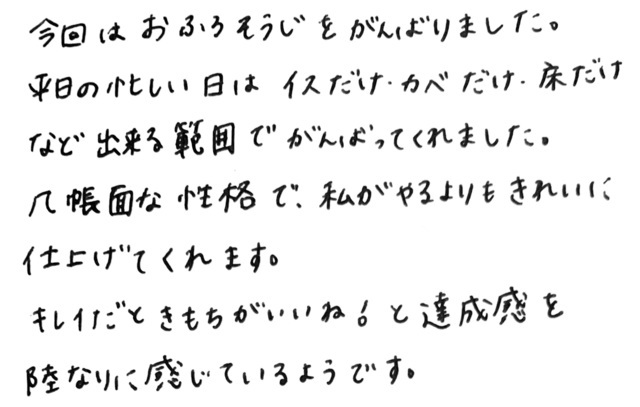 今回はおふろそうじをがんばりました。
平日の忙しい日は イスだけ・カベだけ・床だけ
など出来る範囲でがんばってくれました。
几帳面な性格で、私がやるよりもきれいに
仕上げてくれます。
キレイだときもちがいいね！と達成感を
陸なりに感じているようです。